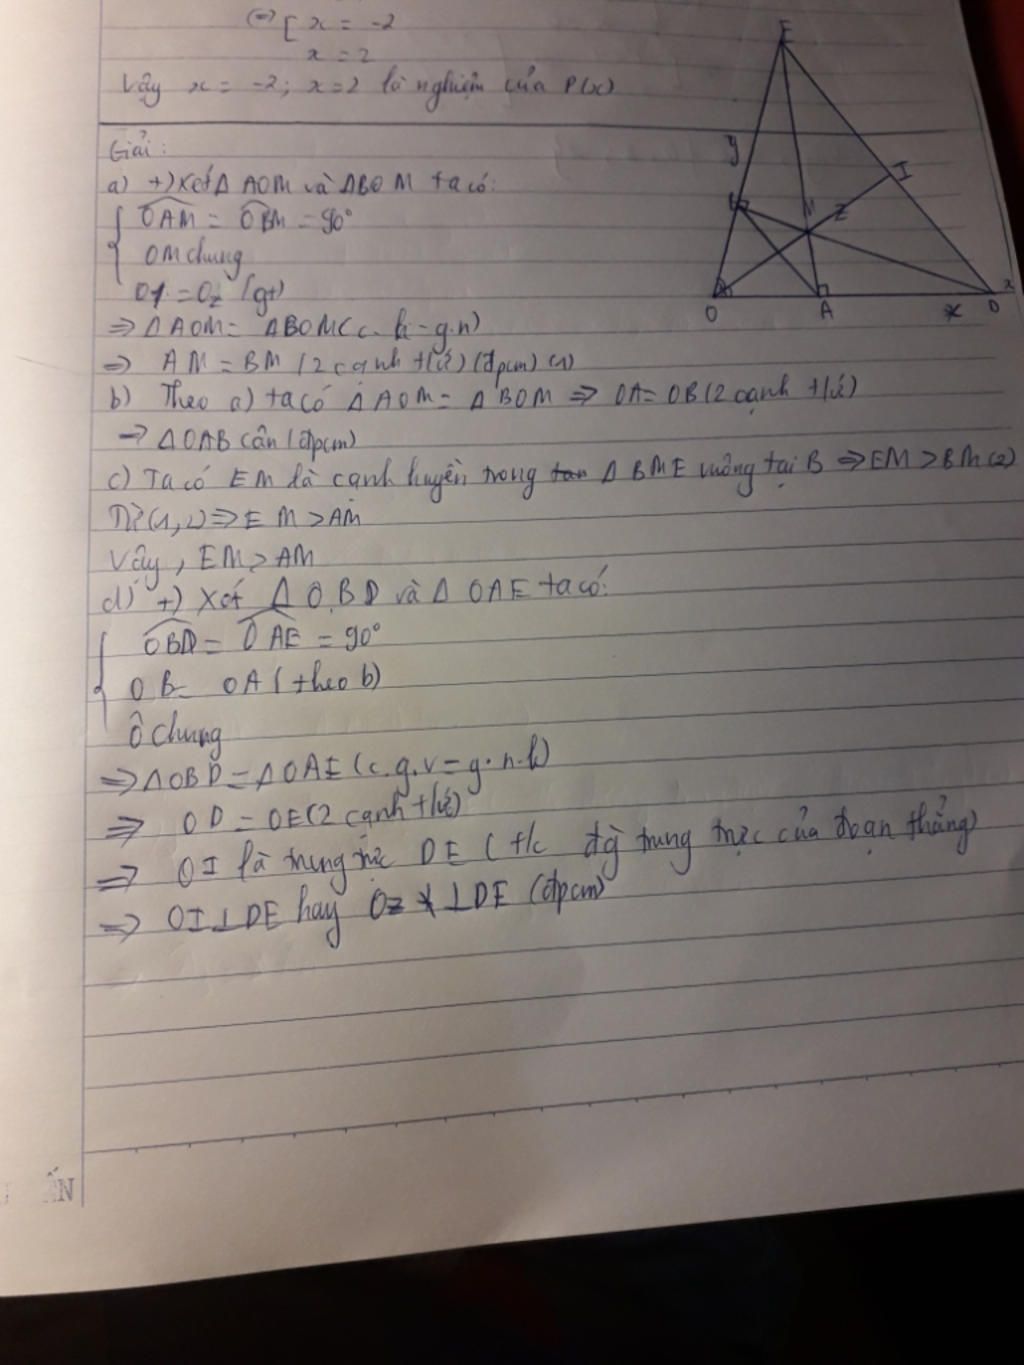 (=) [ x = -2
x = 2
Vậy x = -2; x = 2 là nghiệm của P(x)
Giải:
a) +) Xét Δ AOM và ΔBOM ta có:
OAM = OBM = 90°
OM chung
= Oz (gt)
=> ΔAOM = ΔBOM (c.h-g.n)
=> AM = BM (2 cạnh t/ứ) (đpcm) (1)
b) Theo a) ta có ΔAOM = ΔBOM => OA = OB (2 cạnh t/ứ)
=> ΔOAB cân (đpcm)
c) Ta có EM là cạnh huyền trong Δ BME vuông tại B => EM > BM (2)
Từ (1,2) => EM > AM
Vậy, EM > AM
d) +) Xét Δ OBD và Δ OAE ta có:
OBD = OAE = 90°
OB = OA (theo b)
Ô chung
=> ΔOBD = ΔOAE (c.g.v = g.n.k)
=> OD = OE (2 cạnh t/ứ)
=> OI là trung trực DE (t/c đg trung trực của đoạn thẳng)
=> OI ⊥ DE hay Oz ⊥ DE (đpcm)
E
y
I
M
z
O
A
x
D
ẤN